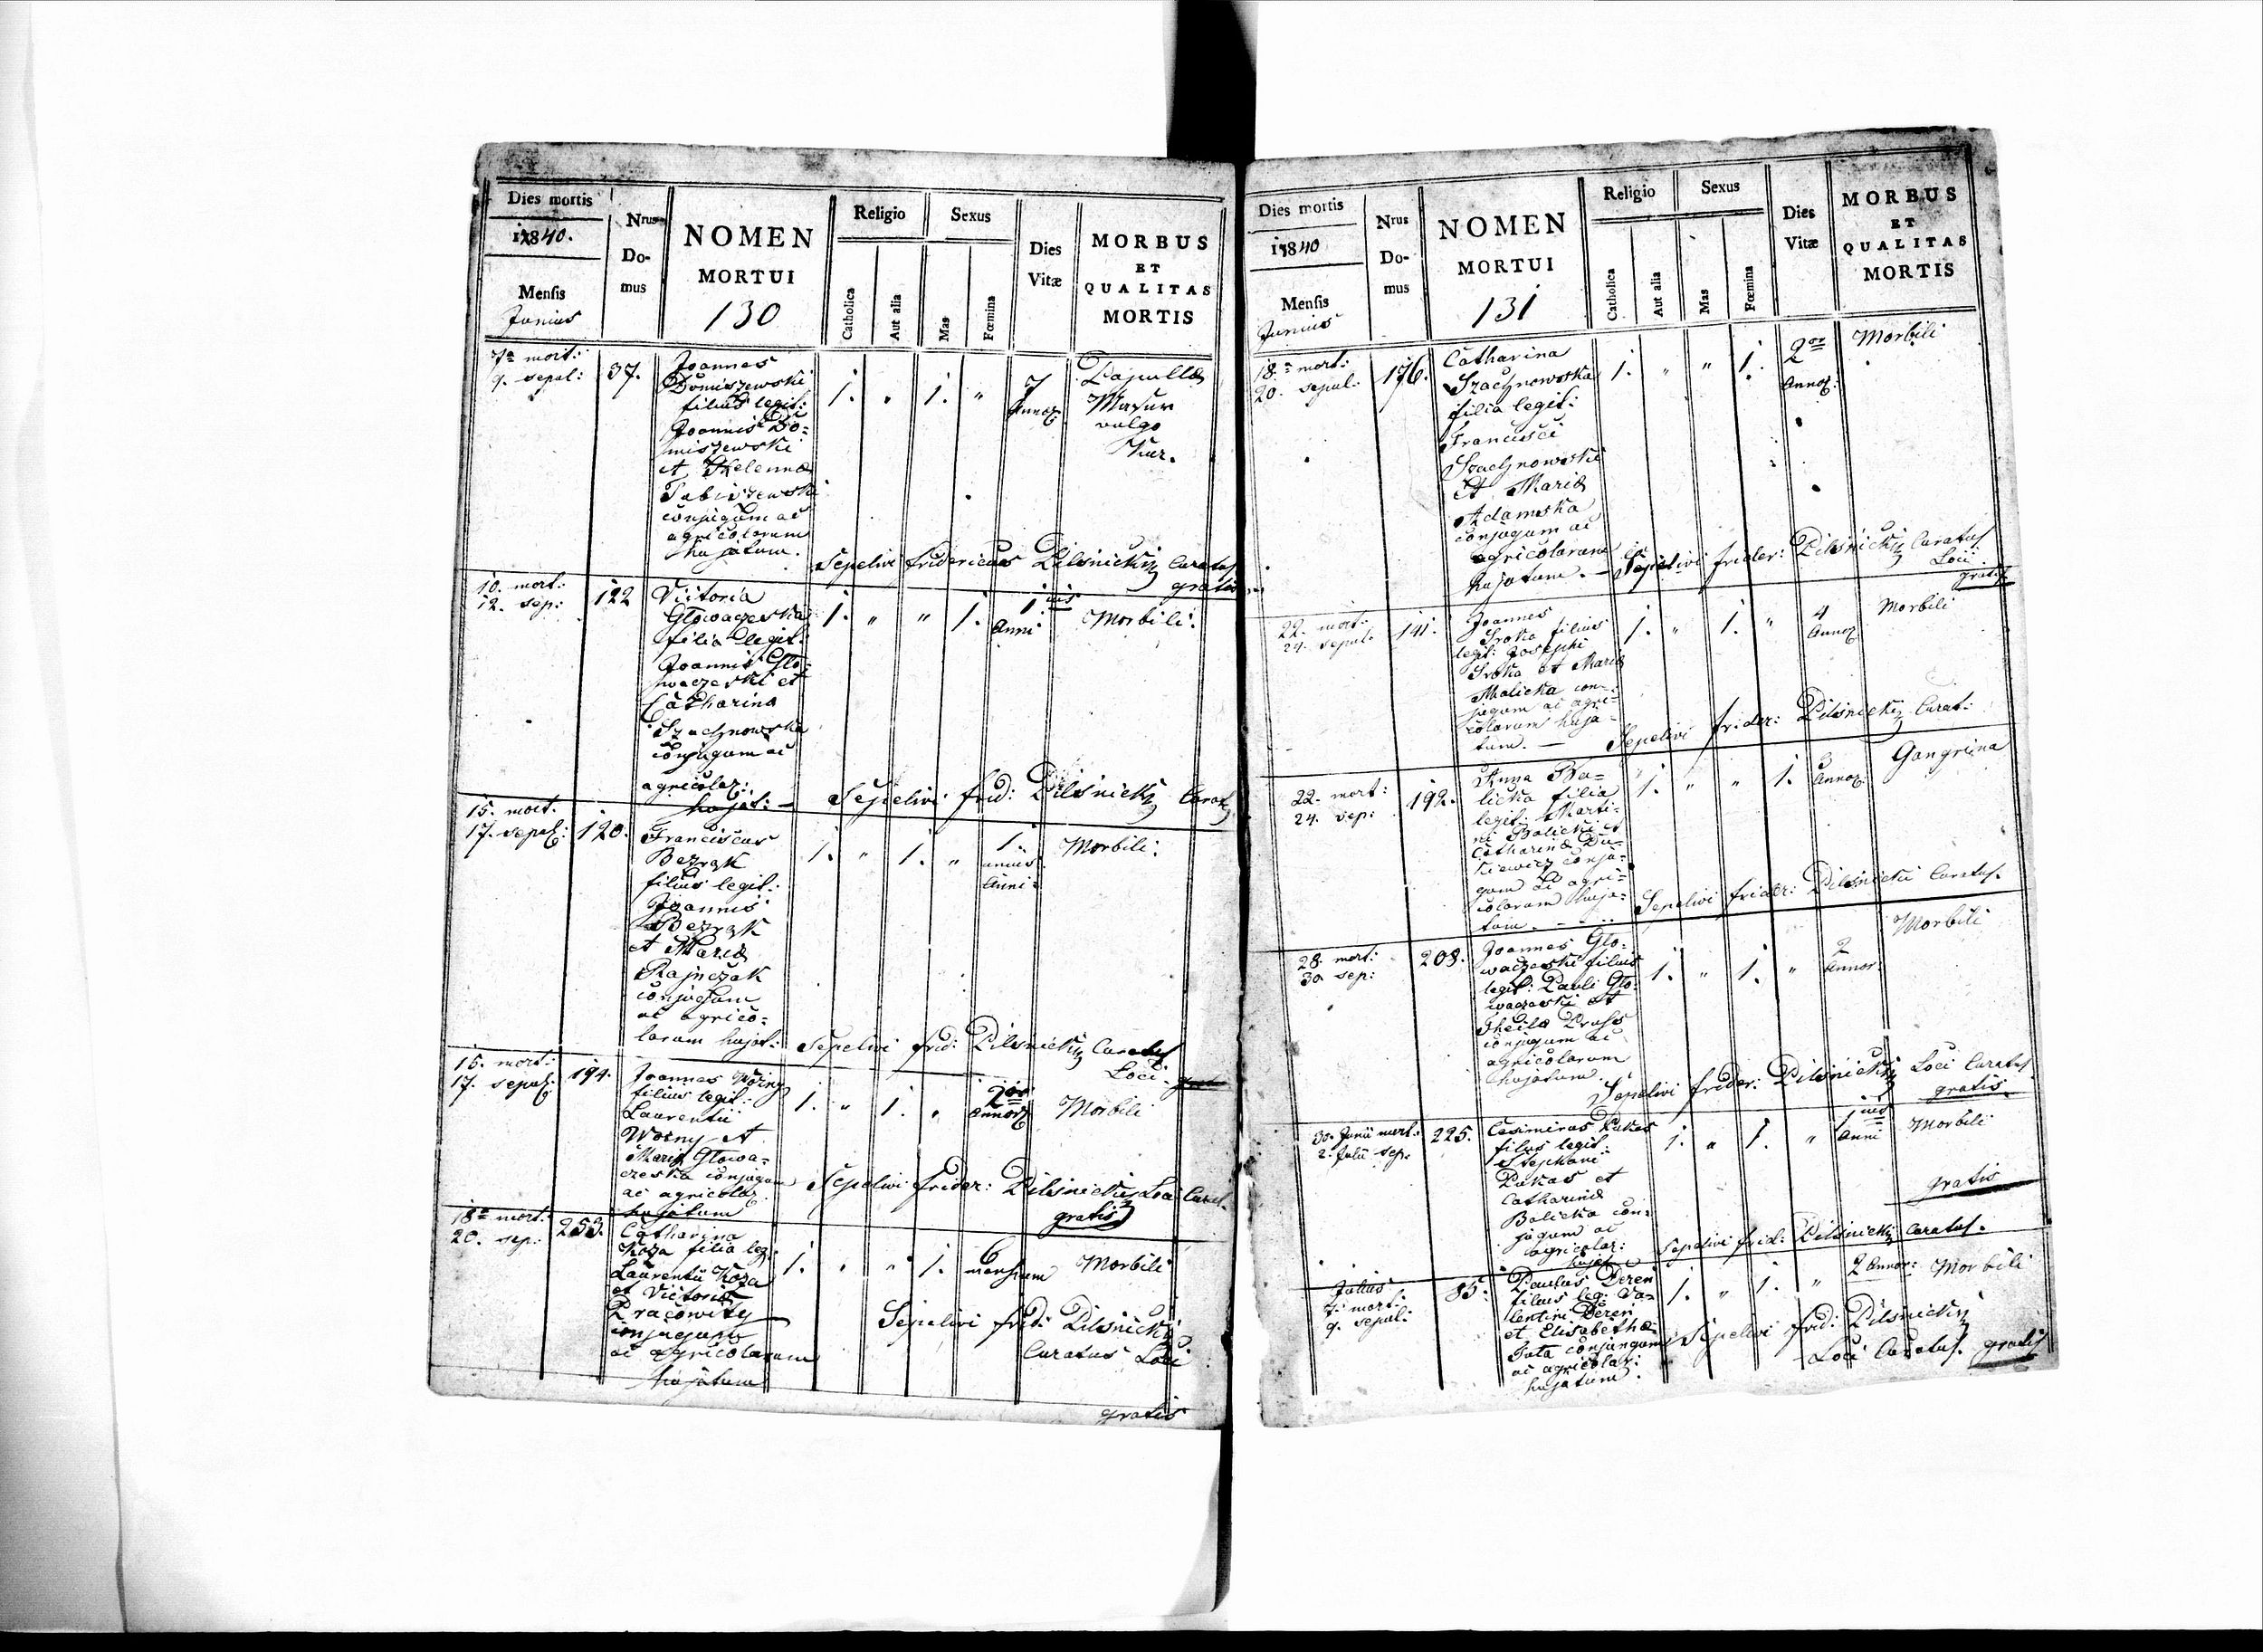 Dies mortis
1840.
Mensis
Junius
Nrus
Do-
mus
NOMEN
MORTUI
130
Religio
Catholica
Aut alia
Sexus
Mas
Fœmina
Dies
Vitæ
MORBUS
ET
QUALITAS
MORTIS
7a mort:
9. sepel:
37.
Joannes
Domiszewski
filius legit:
Joannis Do=
miszewski
et Helenna
conjugum ac
agricolarum
hujatum.
1.
1. "
7
Annor
vulgo
Sepelivi Fridericus Pilsnickij Curatus
gratis
10. mort:
12. sep:
122
Victoria
Głowaczeska
filia legit:
Joannis Gło=
waczeski et
Catharina
Szachnowska
conjugum ac
agricolar:
hujat: —
1. " " 1.
1 ius
Anni
Morbili.
Sepelivi frid: Pilsnickij Curat
15. mort.
17. sepel:
120.
Franciscus
Bezrąk
filius legit:
Joannis
Bezrąk
et Maria
Rajnczak
conjugum
ac agrico=
larum hujat:
1. " 1. "
1.
unius
Anni:
Morbili.
Sepelivi frid: Pilsnickij Curatus
Loci
15. mort:
17. sepel:
194.
Joannes Woźny
filius legit:
Laurentii
Woźny et
Maria Głowa=
czeska conjugum
ac agricolar
hujatum
1. " 1. "
2
Annor
Morbili
Sepelivi frider: Pilsnickij Loci Curat.
gratis
18a mort:
20. sep:
253.
Catharina
Koza filia leg:
Laurentii Koza
et Victoria
Pracowity
conjugum
ac agricolarum
hujatum
1. " " 1.
6
mensium
Morbili
Sepelivi frid: Pilsnickij
Curatus Loci
gratis
Dies mortis
1840
Mensis
Junius
Nrus
Do-
mus
NOMEN
MORTUI
131
Religio
Catholica
Aut alia
Sexus
Mas
Fœmina
Dies
Vitæ
MORBUS
ET
QUALITAS
MORTIS
18.a mort:
20. sepul:
176.
Catharina
Szachnowska
filia legit:
Francisci
Szachnowski
et Maria
Adamska
conjugum ac
agricolarum
hujatum. —
1. " " 1.
2
Annor.
Morbili
Sepelivi frider: Pilsnickij Curatus
Loci
gratis
22. mort:
24. sepul:
141.
Joannes
Sroka filius
legit: Josephi
Sroka et Maria
Malicka con=
jugum ac agri=
colarum huja=
tum. —
1. " 1. "
4
Annor
Morbili
Sepelivi frider: Pilsnickij Curat:
22. mort:
24. sep:
192.
Anna Ba=
licka filia
legit: Marti=
ni Balicki et
Catharina
conju=
gum ac agri=
colarum huja=
tum. —
1. " " 1.
Annor.
Gangrina
Sepelivi frider: Pilsnicki Curatus.
28. mort:
30. sep:
208.
Joannes Gło=
waczeski filius
legit: Pauli Gło=
waczeski et
conjugum ac
agricolarum
hujatum.
1. " 1. "
2
Annor.
Morbili
Sepelivi frider: Pilsnickij Loci Curatus
gratis.
30. Junii mort:
2. Julii sep:
225.
Casimirus Pukas
filius legit:
Stephani
Pukas et
Catharina
Balicka con=
jugum ac
agricolar:
hujat
1. " 1. "
1 ius
Anni
Morbili
gratis
Sepelivi frid: Pilsnickij Curatus.
Julius
7. mort:
9. sepul:
85.
Paulus Dereń
filius leg: Va=
lentini Dereń
et Elisabetha
Juta conjungum
ac agricolar:
hujatum.
1. " 1. "
2 Annor:
Morbili
Sepelivi frid: Pilsnickij
Loci Curatus. gratis